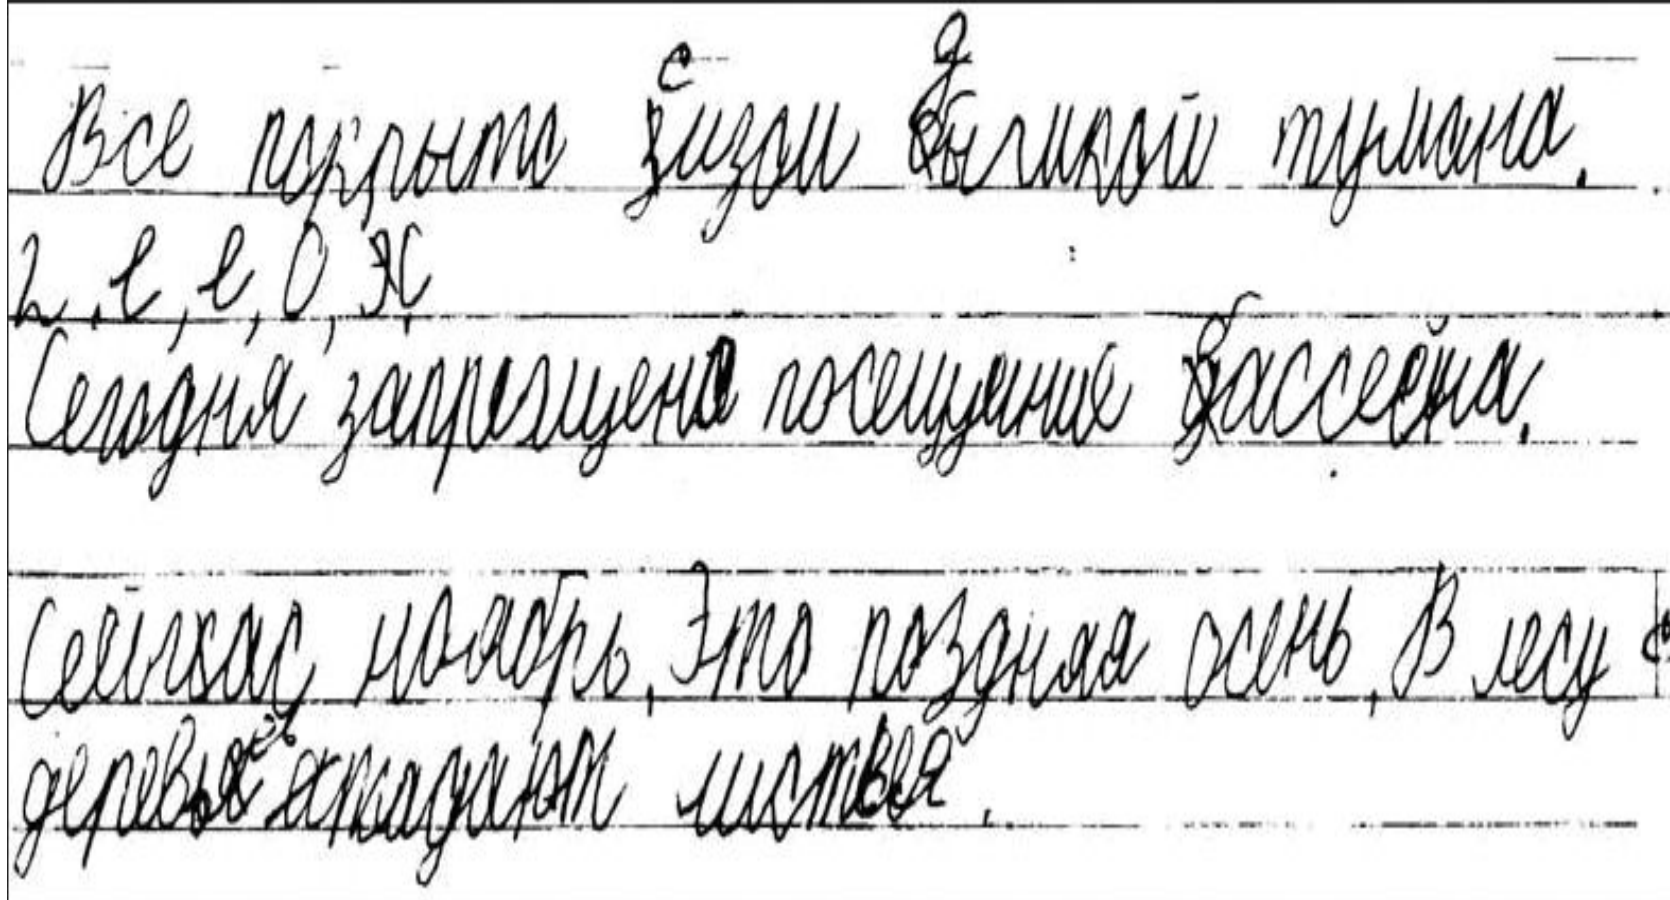 Все покрыто сизой дымкой тумана.
2, е, е, О, Ж
Сегодня запрещено посещение бассейна.
Сейчас ноябрь. Это поздняя осень. В лесу с
деревьев опадают листвея.